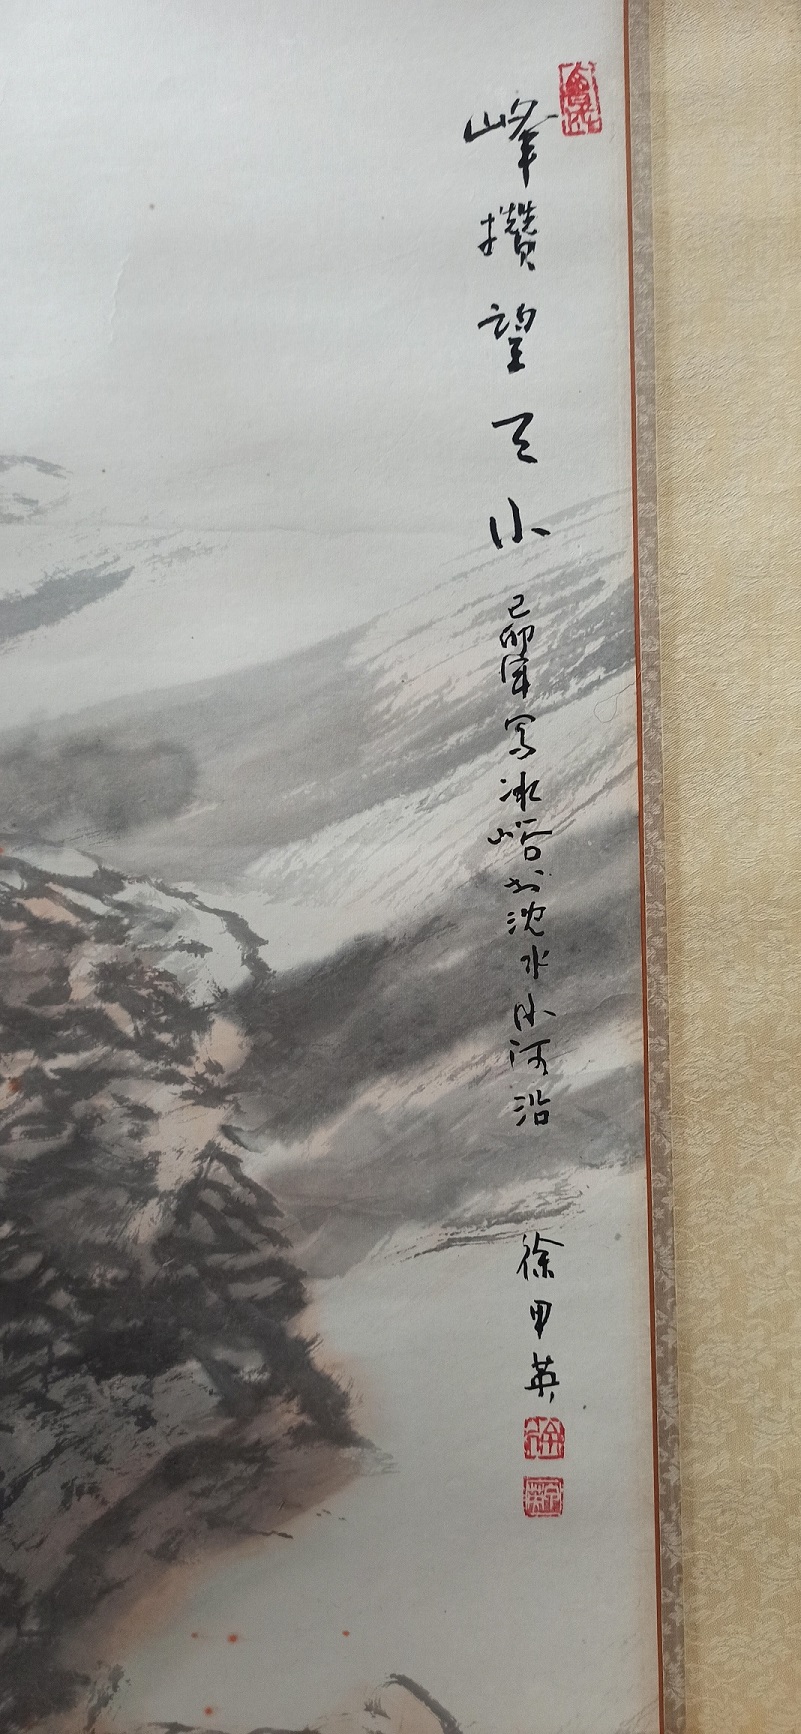 峰攢望天小
己卯年写冰峪於沈水小河沿
徐甲英
徐